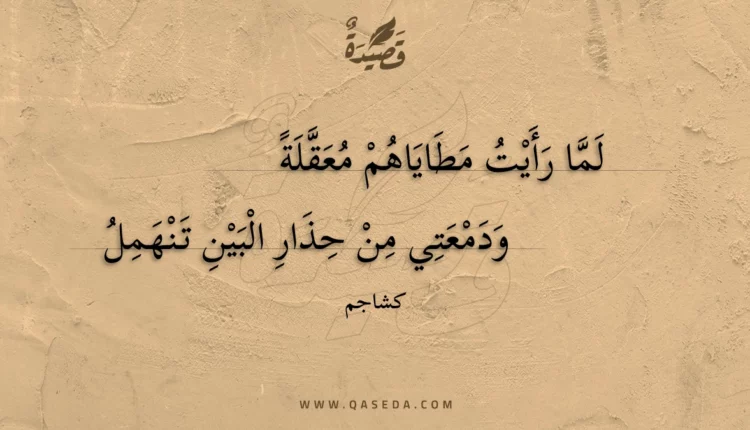 قَصِيدَةٌ
لَمَّا رَأَيْتُ مَطَايَاهُمْ مُعَقَّلَةً
وَدَمْعَتِي مِنْ حِذَارِ الْبَيْنِ تَنْهَمِلُ
كشاجم
WWW.QASEDA.COM